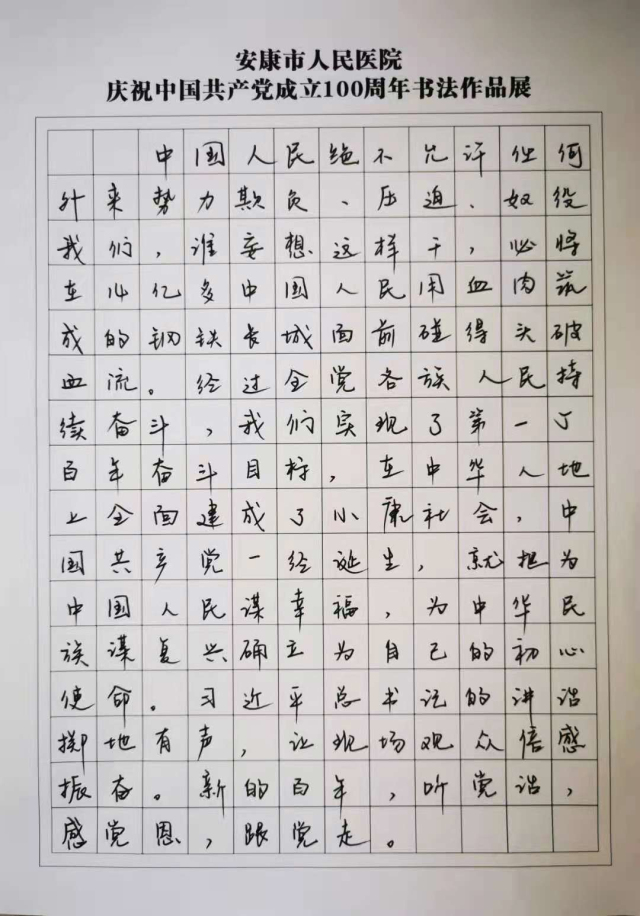 安康市人民医院
庆祝中国共产党成立100周年书法作品展
中国人民绝不允许任何
外来势力欺负、压迫、奴役
我们,谁妄想这样干,必将
在14亿多中国人民用血肉筑
成的钢铁长城面前碰得头破
血流。经过全党各族人民持
续奋斗,我们实现了第一个
百年奋斗目标,在中华大地
上全面建成了小康社会,中
国共产党一经诞生,就把为
中国人民谋幸福,为中华民
族谋复兴确立为自己的初心
使命。习近平总书记的讲话
掷地有声,让现场观众倍感
振奋。新的百年,听党话,
感党恩,跟党走。